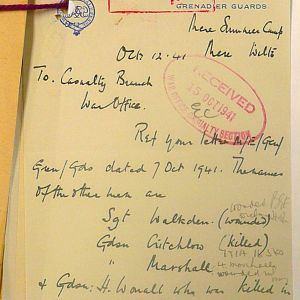 GRENADIER GUARDS
Mere Summer Camp
Mere Wilts
Oct 12. 41
To. Casualty Branch
War Office.
RECEIVED
15 OCT 1941
WAR OFFICE CASUALTY SECTION
Ref your letter Gen/
Gren/Gds dated 7 Oct 1941. The names
of the other men are
Sgt Walkden. (wounded)
Gdsn Critchlow (killed)
" Marshall
& Gdsn: H. who was killed in